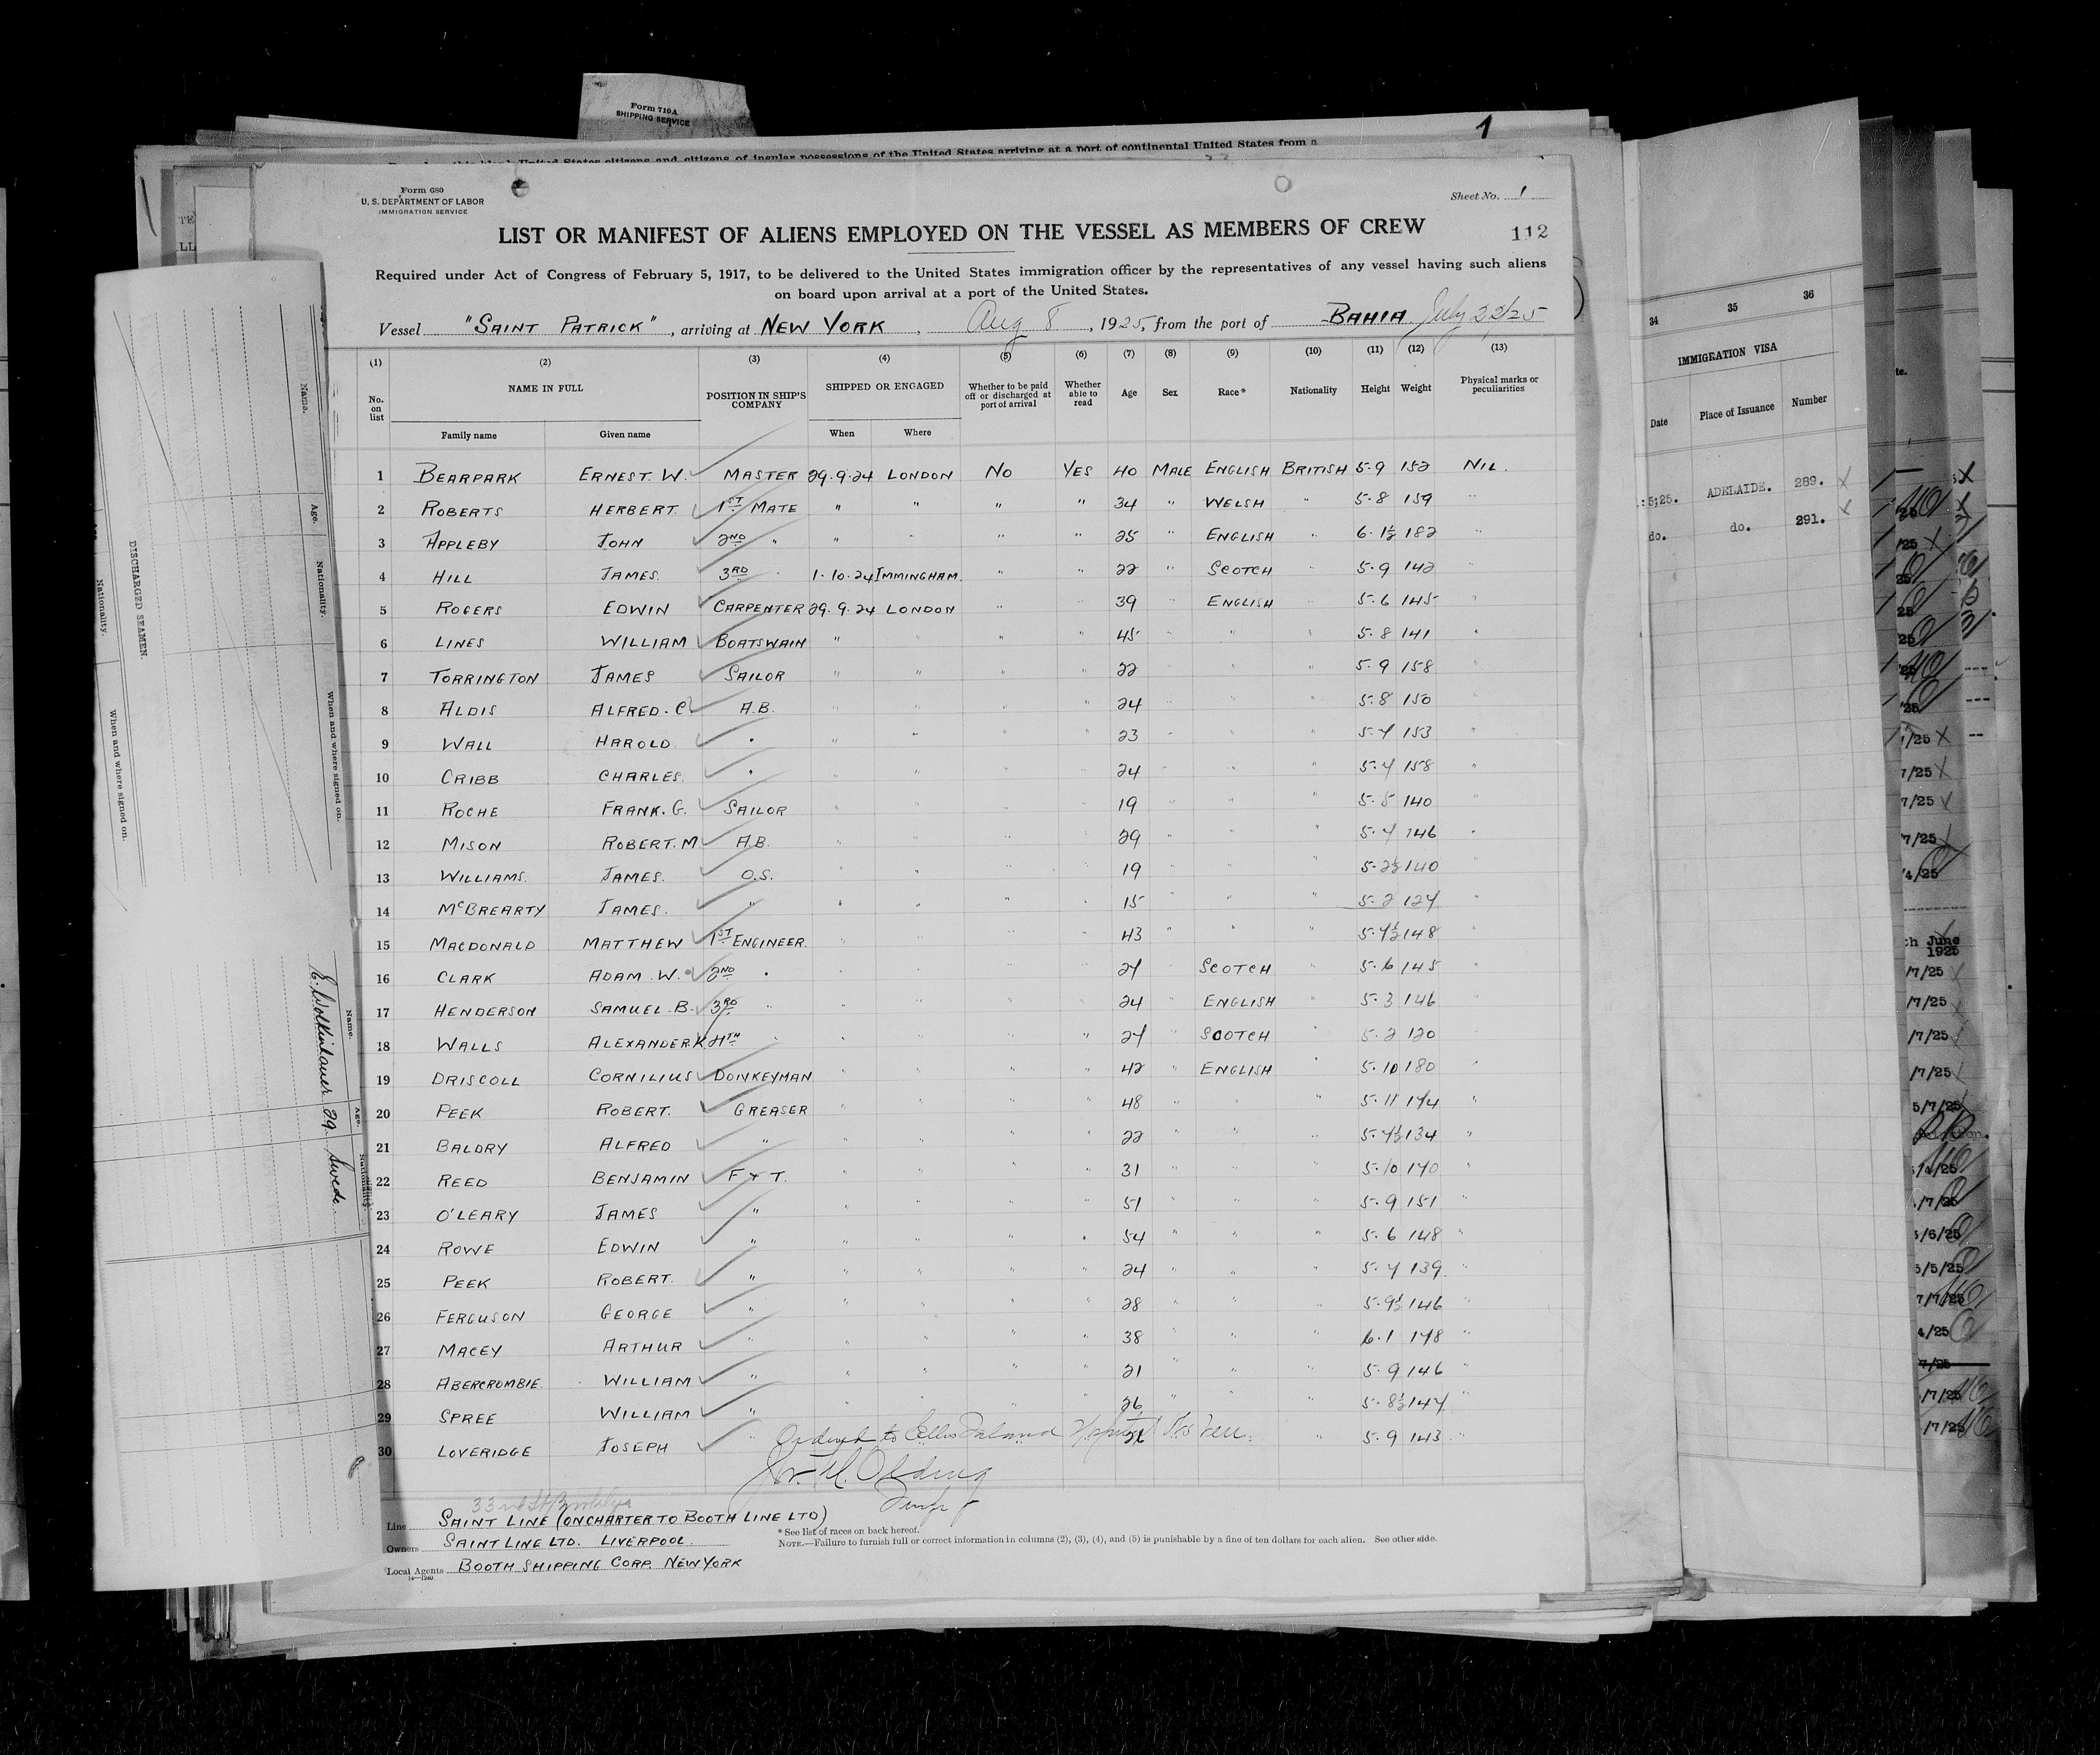 Form 710A
SHIPPING SERVICE
1
United States citizens and citizens of insular possessions of the United States arriving at a port of continental United States from a
Form 680
U. S. DEPARTMENT OF LABOR
IMMIGRATION SERVICE
Sheet No. 1
LIST OR MANIFEST OF ALIENS EMPLOYED ON THE VESSEL AS MEMBERS OF CREW
112
Required under Act of Congress of February 5, 1917, to be delivered to the United States immigration officer by the representatives of any vessel having such aliens
on board upon arrival at a port of the United States.
Vessel "SAINT PATRICK", arriving at NEW YORK, Aug 8, 1925, from the port of BAHIA July 22/25
(1) (2) (3) (4) (5) (6) (7) (8) (9) (10) (11) (12) (13)
No. on list NAME IN FULL POSITION IN SHIP'S COMPANY SHIPPED OR ENGAGED Whether to be paid off or discharged at port of arrival Whether able to read Age Sex Race* Nationality Height Weight Physical marks or peculiarities
Family name Given name When Where
1 BEARPARK ERNEST. W. MASTER 29.9.24 LONDON NO YES 40 MALE ENGLISH BRITISH 5.9 152 NIL.
2 ROBERTS HERBERT. 1ST MATE " " " " 34 " WELSH " 5.8 159 "
3 APPLEBY JOHN 2ND " " " " " 25 " ENGLISH " 6.1½ 182 "
4 HILL JAMES. 3RD " 1.10.24 IMMINGHAM. " " 22 " SCOTCH " 5.9 142 "
5 ROGERS EDWIN CARPENTER 29.9.24 LONDON " " 39 " ENGLISH " 5.6 145 "
6 LINES WILLIAM BOATSWAIN " " " " 45 " " " 5.8 141 "
7 TORRINGTON JAMES SAILOR " " " " 22 " " " 5.9 158 "
8 ALDIS ALFRED. C. A.B. " " " " 24 " " " 5.8 150 "
9 WALL HAROLD. " " " " " 23 " " " 5.7 153 "
10 CRIBB CHARLES. " " " " " 24 " " " 5.7 158 "
11 ROCHE FRANK. G. SAILOR " " " " 19 " " " 5.5 140 "
12 MISON ROBERT. M A.B. " " " " 29 " " " 5.7 146 "
13 WILLIAMS. JAMES. O.S. " " " " 19 " " " 5.2½ 140 "
14 McBREARTY JAMES. " " " " " 15 " " " 5.2 127 "
15 MACDONALD MATTHEW 1ST ENGINEER. " " " " 43 " " " 5.7½ 148 "
16 CLARK ADAM. W. 2ND " " " " " 27 " SCOTCH " 5.6 145 "
17 HENDERSON SAMUEL. B. 3RD " " " " " 24 " ENGLISH " 5.3 146 "
18 WALLS ALEXANDER. K. 4TH " " " " " 27 " SCOTCH " 5.2 120 "
19 DRISCOLL CORNILIUS DONKEYMAN " " " " 42 " ENGLISH " 5.10 180 "
20 PEEK ROBERT. GREASER " " " " 48 " " " 5.11 174 "
21 BALDRY ALFRED " " " " " 22 " " " 5.7½ 134 "
22 REED BENJAMIN F & T. " " " " 31 " " " 5.10 170 "
23 O'LEARY JAMES " " " " " 51 " " " 5.9 151 "
24 ROWE EDWIN " " " " " 54 " " " 5.6 148 "
25 PEEK ROBERT. " " " " " 24 " " " 5.7 139 "
26 FERGUSON GEORGE " " " " " 28 " " " 5.9½ 146 "
27 MACEY ARTHUR " " " " " 38 " " " 6.1 178 "
28 ABERCROMBIE. WILLIAM " " " " " 21 " " " 5.9 146 "
29 SPREE WILLIAM " " " " " 26 " " " 5.8½ 147 "
30 LOVERIDGE JOSEPH " 5.9 143 "
Ordered to Ellis Island Hospital
33rd St Brooklyn
Line SAINT LINE (ON CHARTER TO BOOTH LINE LTD)
Owners SAINT LINE LTD. LIVERPOOL.
Local Agents BOOTH SHIPPING CORP. NEW YORK
14—1240
* See list of races on back hereof.
NOTE.—Failure to furnish full or correct information in columns (2), (3), (4), and (5) is punishable by a fine of ten dollars for each alien. See other side.
DISCHARGED SEAMEN.
Name. Age. Nationality. When and where signed on.
Nationality. When and where signed on.
Name. Age. Nationality.
29. Swede
34 35 36
IMMIGRATION VISA
Date Place of Issuance Number
5;25. ADELAIDE. 289.
do. do. 291.